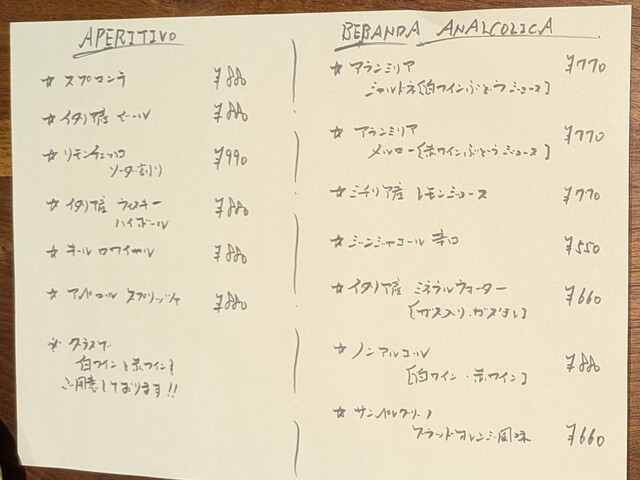 APERITIVO
☆ スプマンテ ¥880
☆ イタリア産 ビール ¥880
☆ リモンチェッロ ¥990
ソーダ割り
☆ イタリア産 ウィスキー ¥880
ハイボール
☆ キール ロワイヤル ¥880
☆ アペロール スプリッツァ ¥880
※ グラスで
白ワインと赤ワインも
ご用意しております!!
BEBANDA ANALCOLICA
☆ アランミリア ¥770
シャルドネ[白ワインぶどうジュース]
☆ アランミリア ¥770
メルロー[赤ワインぶどうジュース]
☆ シチリア産 レモンジュース ¥770
☆ ジンジャエール 辛口 ¥550
☆ イタリア産 ミネラルウォーター ¥660
[ガス入り・ガスなし]
☆ ノンアルコール ¥880
[白ワイン・赤ワイン]
☆ サンペレグリーノ
ブラッドオレンジ風味 ¥660